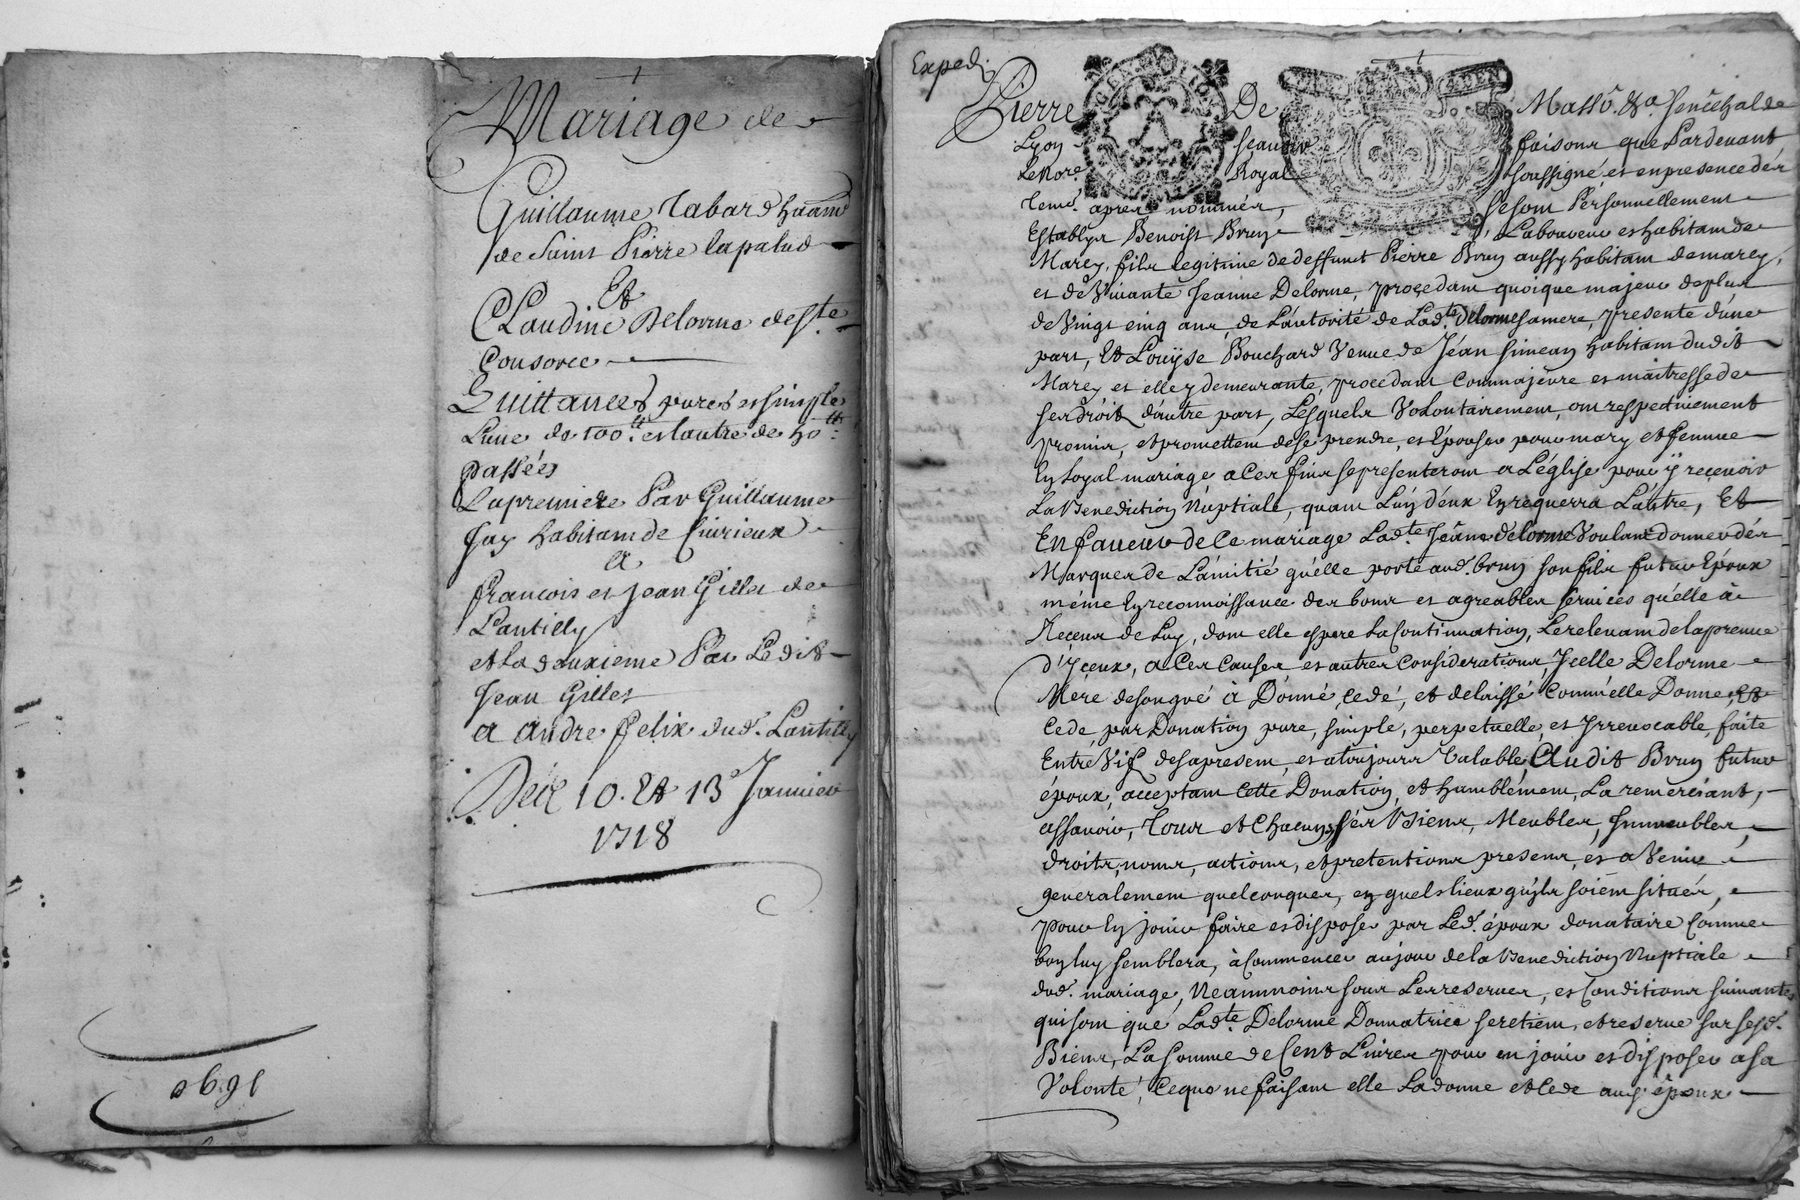 Mariage de
Guillaume Tabard habitant
de Saint Pierre lapalud
Et
Claudine Delorme de Ste
Consorce
Quittances pures et simples
L'une de 100tt et l'autre de 50tt
passées
La premiere Par Guillaume
Jay habitant de Civrieux
A
francois et Jean Gilles de
Lantilly
et La deuxieme Par Ledit
Jean Gilles
A Andre felix dud. Lantilly
Des 10. Et 13e Janvier
1718
1690
Exped.
Pierre De Masso &a. senechal de
Lyon scavoir faisons que Pardevant
Le Nore. Royal soussigné, et en presence des
tems. apres nommés, se sont Personnellement
Establys Benoist Bruy Laboureur et habitant de
Marcy, fils legitime de deffunct Pierre Bruy aussy habitant de marcy,
et de Vivante Jeanne Delorme, procedant quoique majeur de plus
de Vingt cinq ans, de L'autorité de Ladte. Delorme sa mere, presente d'une
part, Et Loüyse Bouchard Veuve de Jéan simean habitant dudit
Marcy et elle y demeurante, procedant comme majeure et maîtresse de
ses droits d'autre part, Lesquels Volontairement, ont respectivement
promis, et promettent de se prendre, et Epouser pour mary et femme
En Loyal mariage a ces fins se presenteront a L'église pour ÿ recevoir
La Benediction Nuptiale, quant L'un d'eux En requerra L'autre, Et
En faveur de Ce mariage Ladte. Jeanne Delorme Voulant donner des
Marques de L'amitié qu'elle porte aud. bruy son fils futur Epoux
méme En reconnoissance des bons et agreables services qu'elle à
Receus de Luy, dont elle espere La Continuation, Le relevant de la preuve
d'Yceux, a Ces causes et autres Considerations, Ycelle Delorme
Mere de son gré à Donné, Cedé, et delaissé comme elle Donne, Et
Cede par Donation pure, simple, perpetuelle, et Yrrevocable, faite
Entré Vif des a present, et a toujours Valable, Audit Bruy futur
époux, acceptant Cette Donation, et humblement, La remerciant,
assavoir, Tous et Chacuns ses Biens, Meubles, Immeubles,
droits, noms, actions, et pretentions presens, et a Venir
generalement quelconques, en quels lieux qu'ils soient situés,
pour En jouir faire et disposer par Led. époux donataire Comme
bon luy semblera, à Commencer au jour de la Benediction Nuptiale
dud. mariage, Neanmoins sous Les reserves, et Conditions suivantes
qui sont que Ladte. Delorme Donnatrice se retient, et reserve sur sesd.
Biens, La somme de Cent Livres pour en jouir et disposer a sa
Volonté, Ce que ne faisant elle La donne et Cede aud. époux